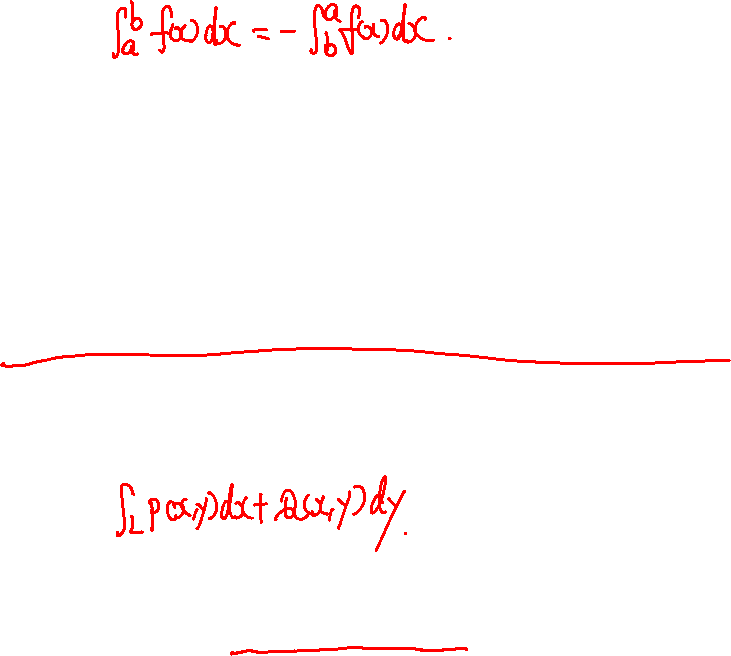 ∫_a^b f(x)dx = - ∫_b^a f(x)dx.
∫_L P(x,y)dx + Q(x,y)dy.